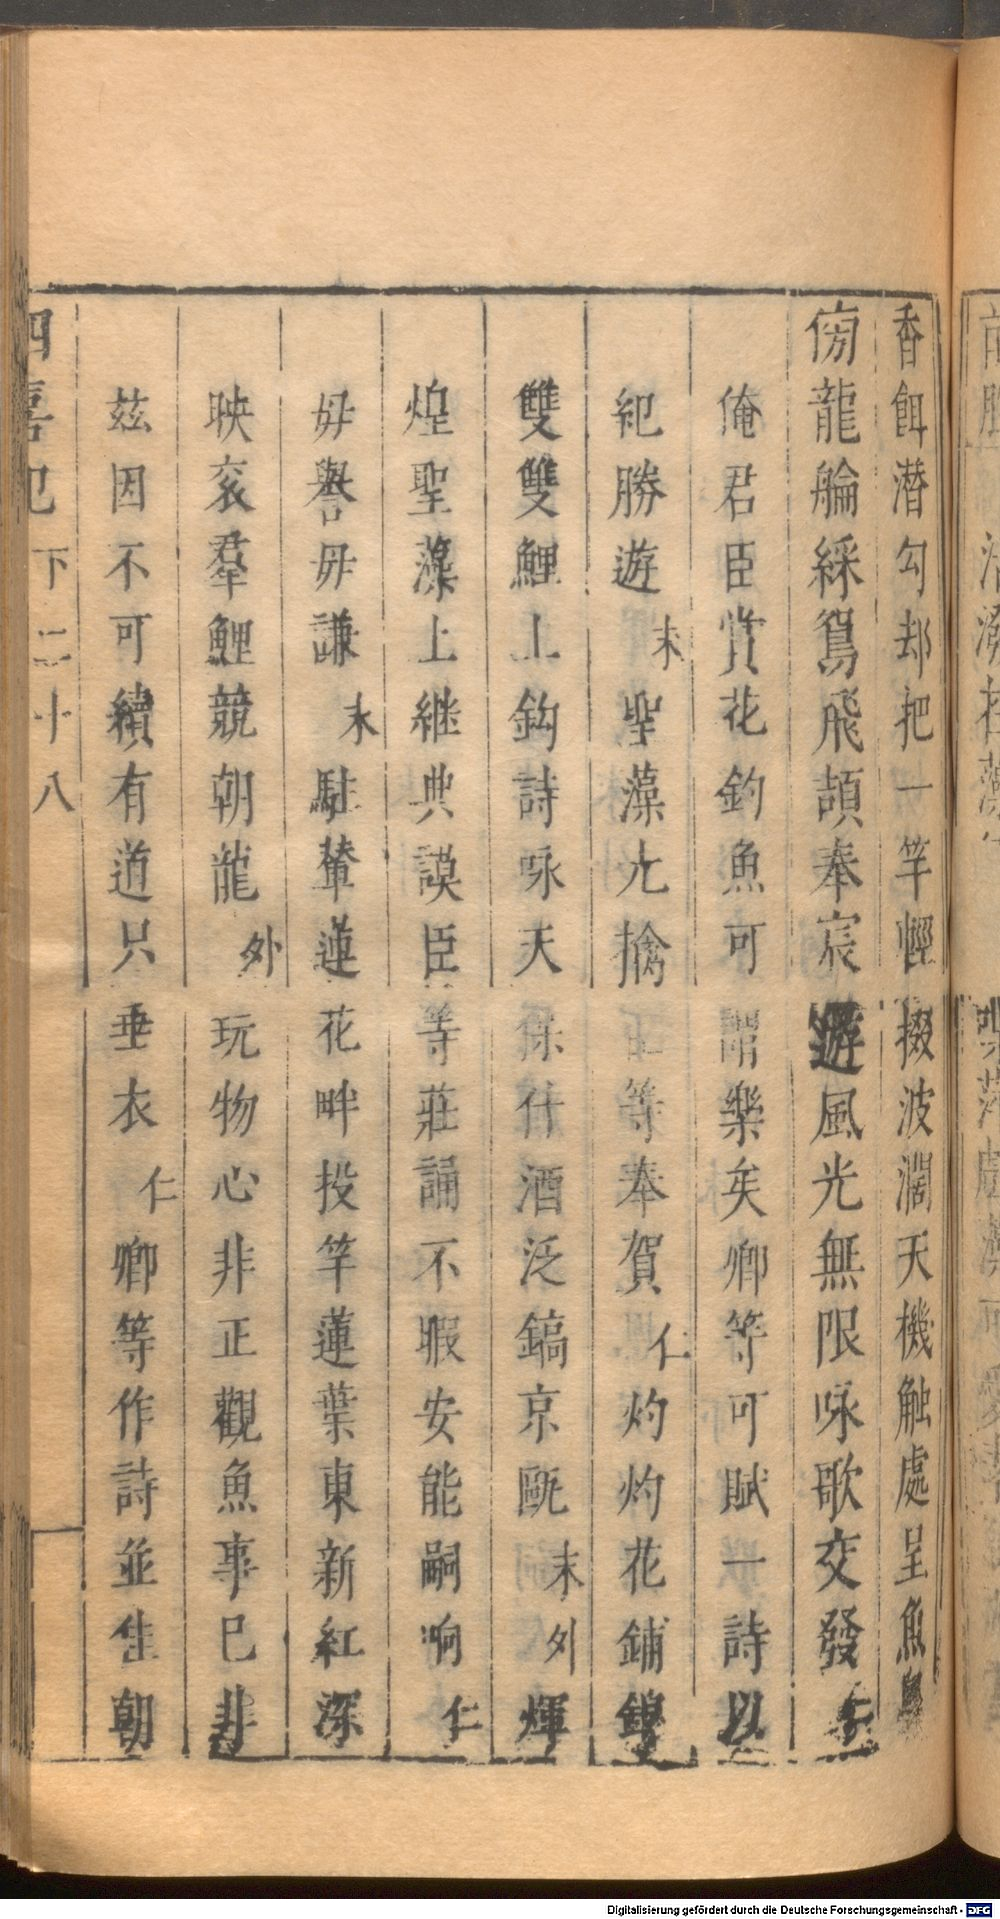 香餌潜勾却把一竿輕掇波濶天機触處呈魚
傍龍舲綵鴛飛頡奉宸遊風光無限咏歌交發仁
俺君臣賞花釣魚可謂樂矣卿等可賦一詩以
紀勝遊末聖藻允擒臣等奉賀仁灼灼花鋪錦
雙雙鯉上鈎詩咏天保什酒泛鎬京甌末外煇
煌聖藻上継典謨臣等莊誦不暇安能嗣响仁
毋譽毋謙末駐輦蓮花畔投竿蓮葉東新紅深
映衮羣鯉競朝龍外玩物心非正觀魚事已非
茲因不可續有道只垂衣仁卿等作詩並佳朝
四喜記 下二十八
Digitalisierung gefördert durch die Deutsche Forschungsgemeinschaft - DFG